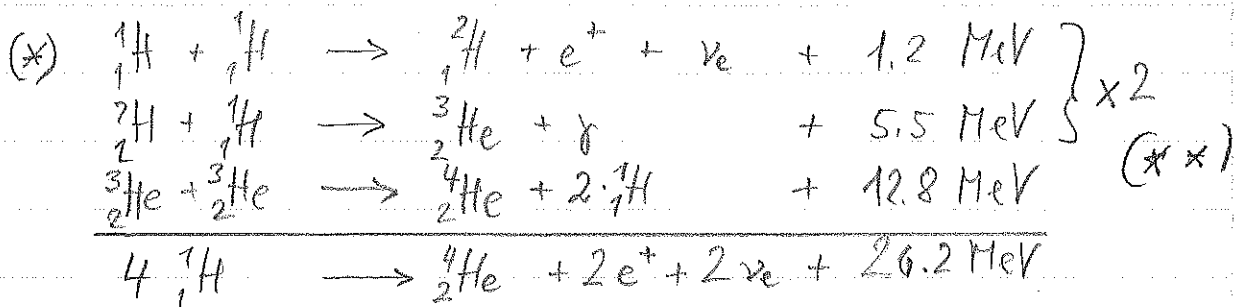 (*) ¹₁H + ¹₁H → ²₁H + e⁺ + νₑ + 1.2 MeV } ×2
²₁H + ¹₁H → ³₂He + γ + 5.5 MeV (**)
³₂He + ³₂He → ⁴₂He + 2·¹₁H + 12.8 MeV
4 ¹₁H → ⁴₂He + 2e⁺ + 2νₑ + 26.2 MeV